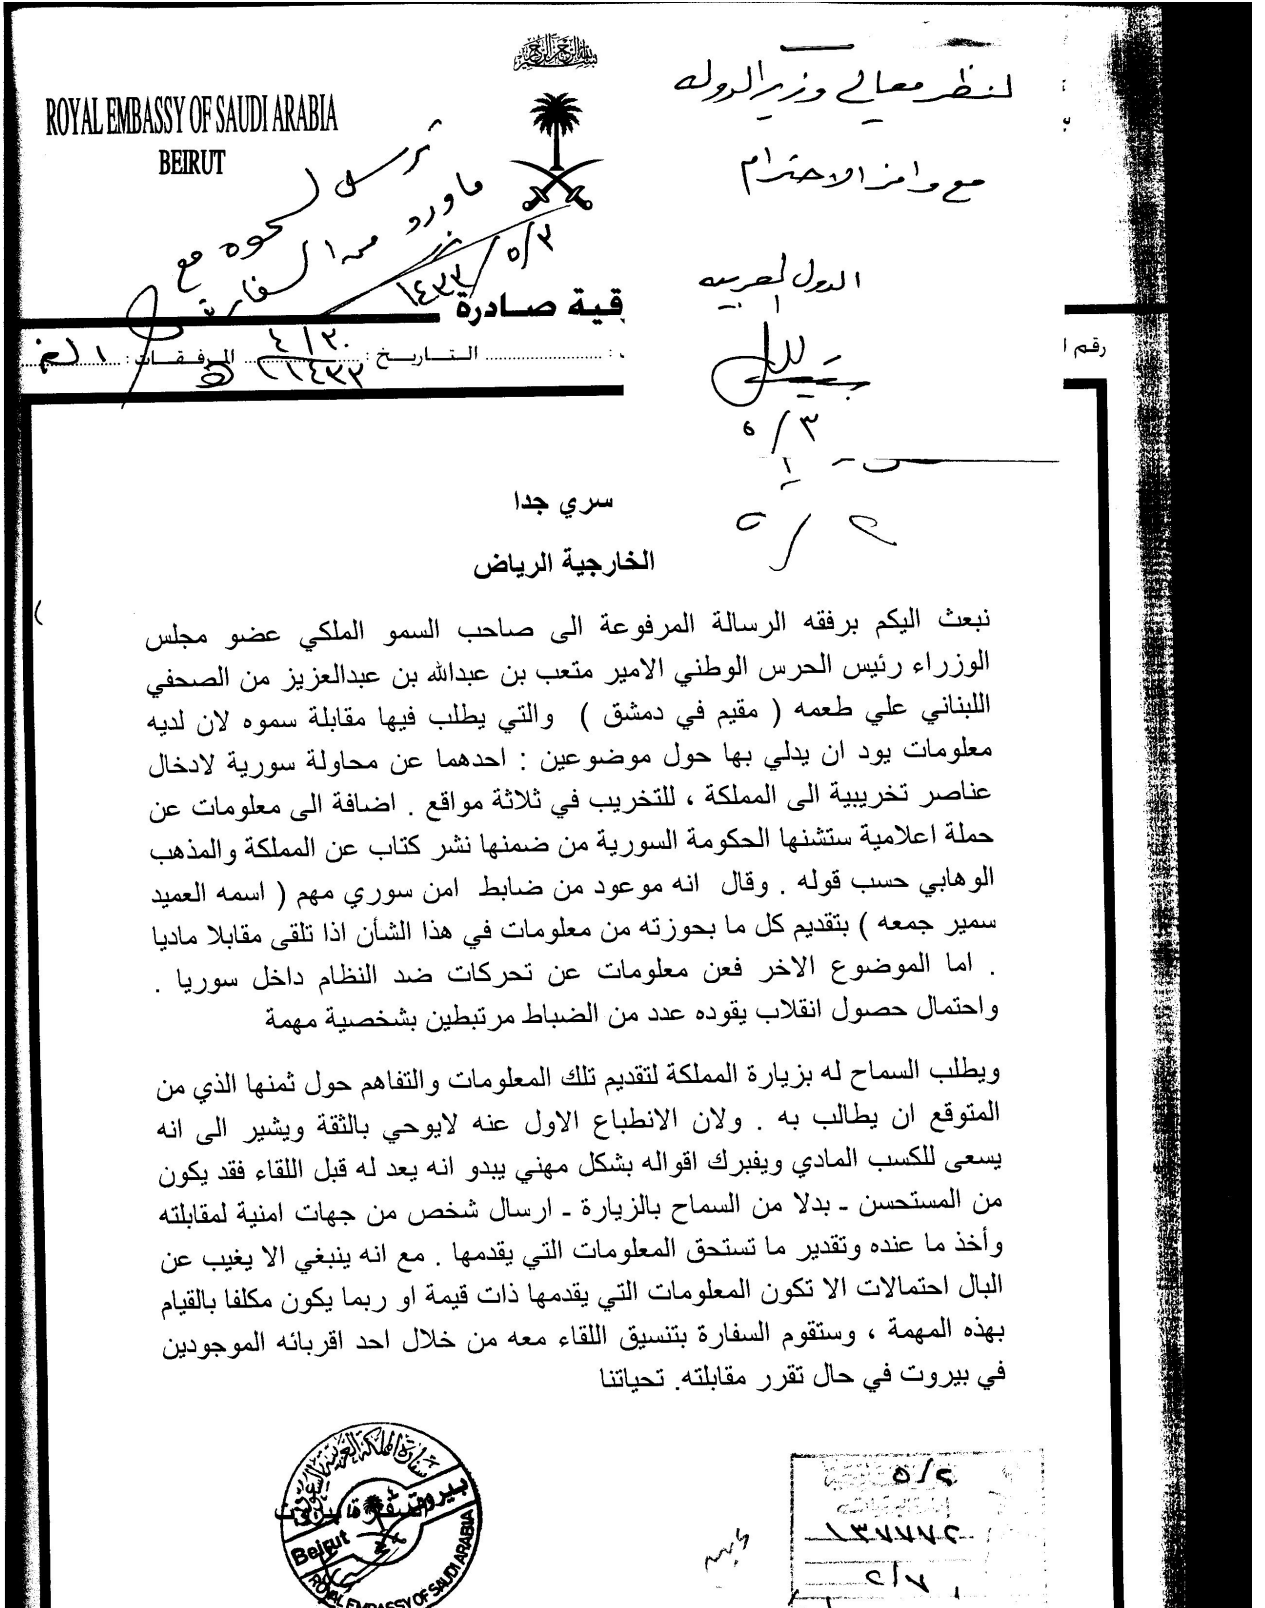 بسم الله الرحمن الرحيم
ROYAL EMBASSY OF SAUDI ARABIA
BEIRUT
لنظر معالي وزير الدوله
مع وافر الاحترام
ترسل
لسموه مع
ما ورد من السفارة
١٤٣٣/٥/٣
الدول العربيه
رقية صادرة
رقم ا
التاريخ : ٤/٣٠ ١٤٣٣ المرفقات :
٥/٣
٥/٢
سري جدا
الخارجية الرياض
نبعث اليكم برفقه الرسالة المرفوعة الى صاحب السمو الملكي عضو مجلس
الوزراء رئيس الحرس الوطني الامير متعب بن عبدالله بن عبدالعزيز من الصحفي
اللبناني علي طعمه ( مقيم في دمشق ) والتي يطلب فيها مقابلة سموه لان لديه
معلومات يود ان يدلي بها حول موضوعين : احدهما عن محاولة سورية لادخال
عناصر تخريبية الى المملكة ، للتخريب في ثلاثة مواقع . اضافة الى معلومات عن
حملة اعلامية ستشنها الحكومة السورية من ضمنها نشر كتاب عن المملكة والمذهب
الوهابي حسب قوله . وقال انه موعود من ضابط امن سوري مهم ( اسمه العميد
سمير جمعه ) بتقديم كل ما بحوزته من معلومات في هذا الشأن اذا تلقى مقابلا ماديا
. اما الموضوع الاخر فعن معلومات عن تحركات ضد النظام داخل سوريا .
واحتمال حصول انقلاب يقوده عدد من الضباط مرتبطين بشخصية مهمة
ويطلب السماح له بزيارة المملكة لتقديم تلك المعلومات والتفاهم حول ثمنها الذي من
المتوقع ان يطالب به . ولان الانطباع الاول عنه لايوحي بالثقة ويشير الى انه
يسعى للكسب المادي ويفبرك اقواله بشكل مهني يبدو انه يعد له قبل اللقاء فقد يكون
من المستحسن - بدلا من السماح بالزيارة - ارسال شخص من جهات امنية لمقابلته
وأخذ ما عنده وتقدير ما تستحق المعلومات التي يقدمها . مع انه ينبغي الا يغيب عن
البال احتمالات الا تكون المعلومات التي يقدمها ذات قيمة او ربما يكون مكلفا بالقيام
بهذه المهمة ، وستقوم السفارة بتنسيق اللقاء معه من خلال احد اقربائه الموجودين
في بيروت في حال تقرر مقابلته. تحياتنا
سفارة المملكة العربية السعودية
بيروت
Beirut
ROYAL EMBASSY OF SAUDI ARABIA
٥/٢
١٣٧٧٧٢
٢/٧